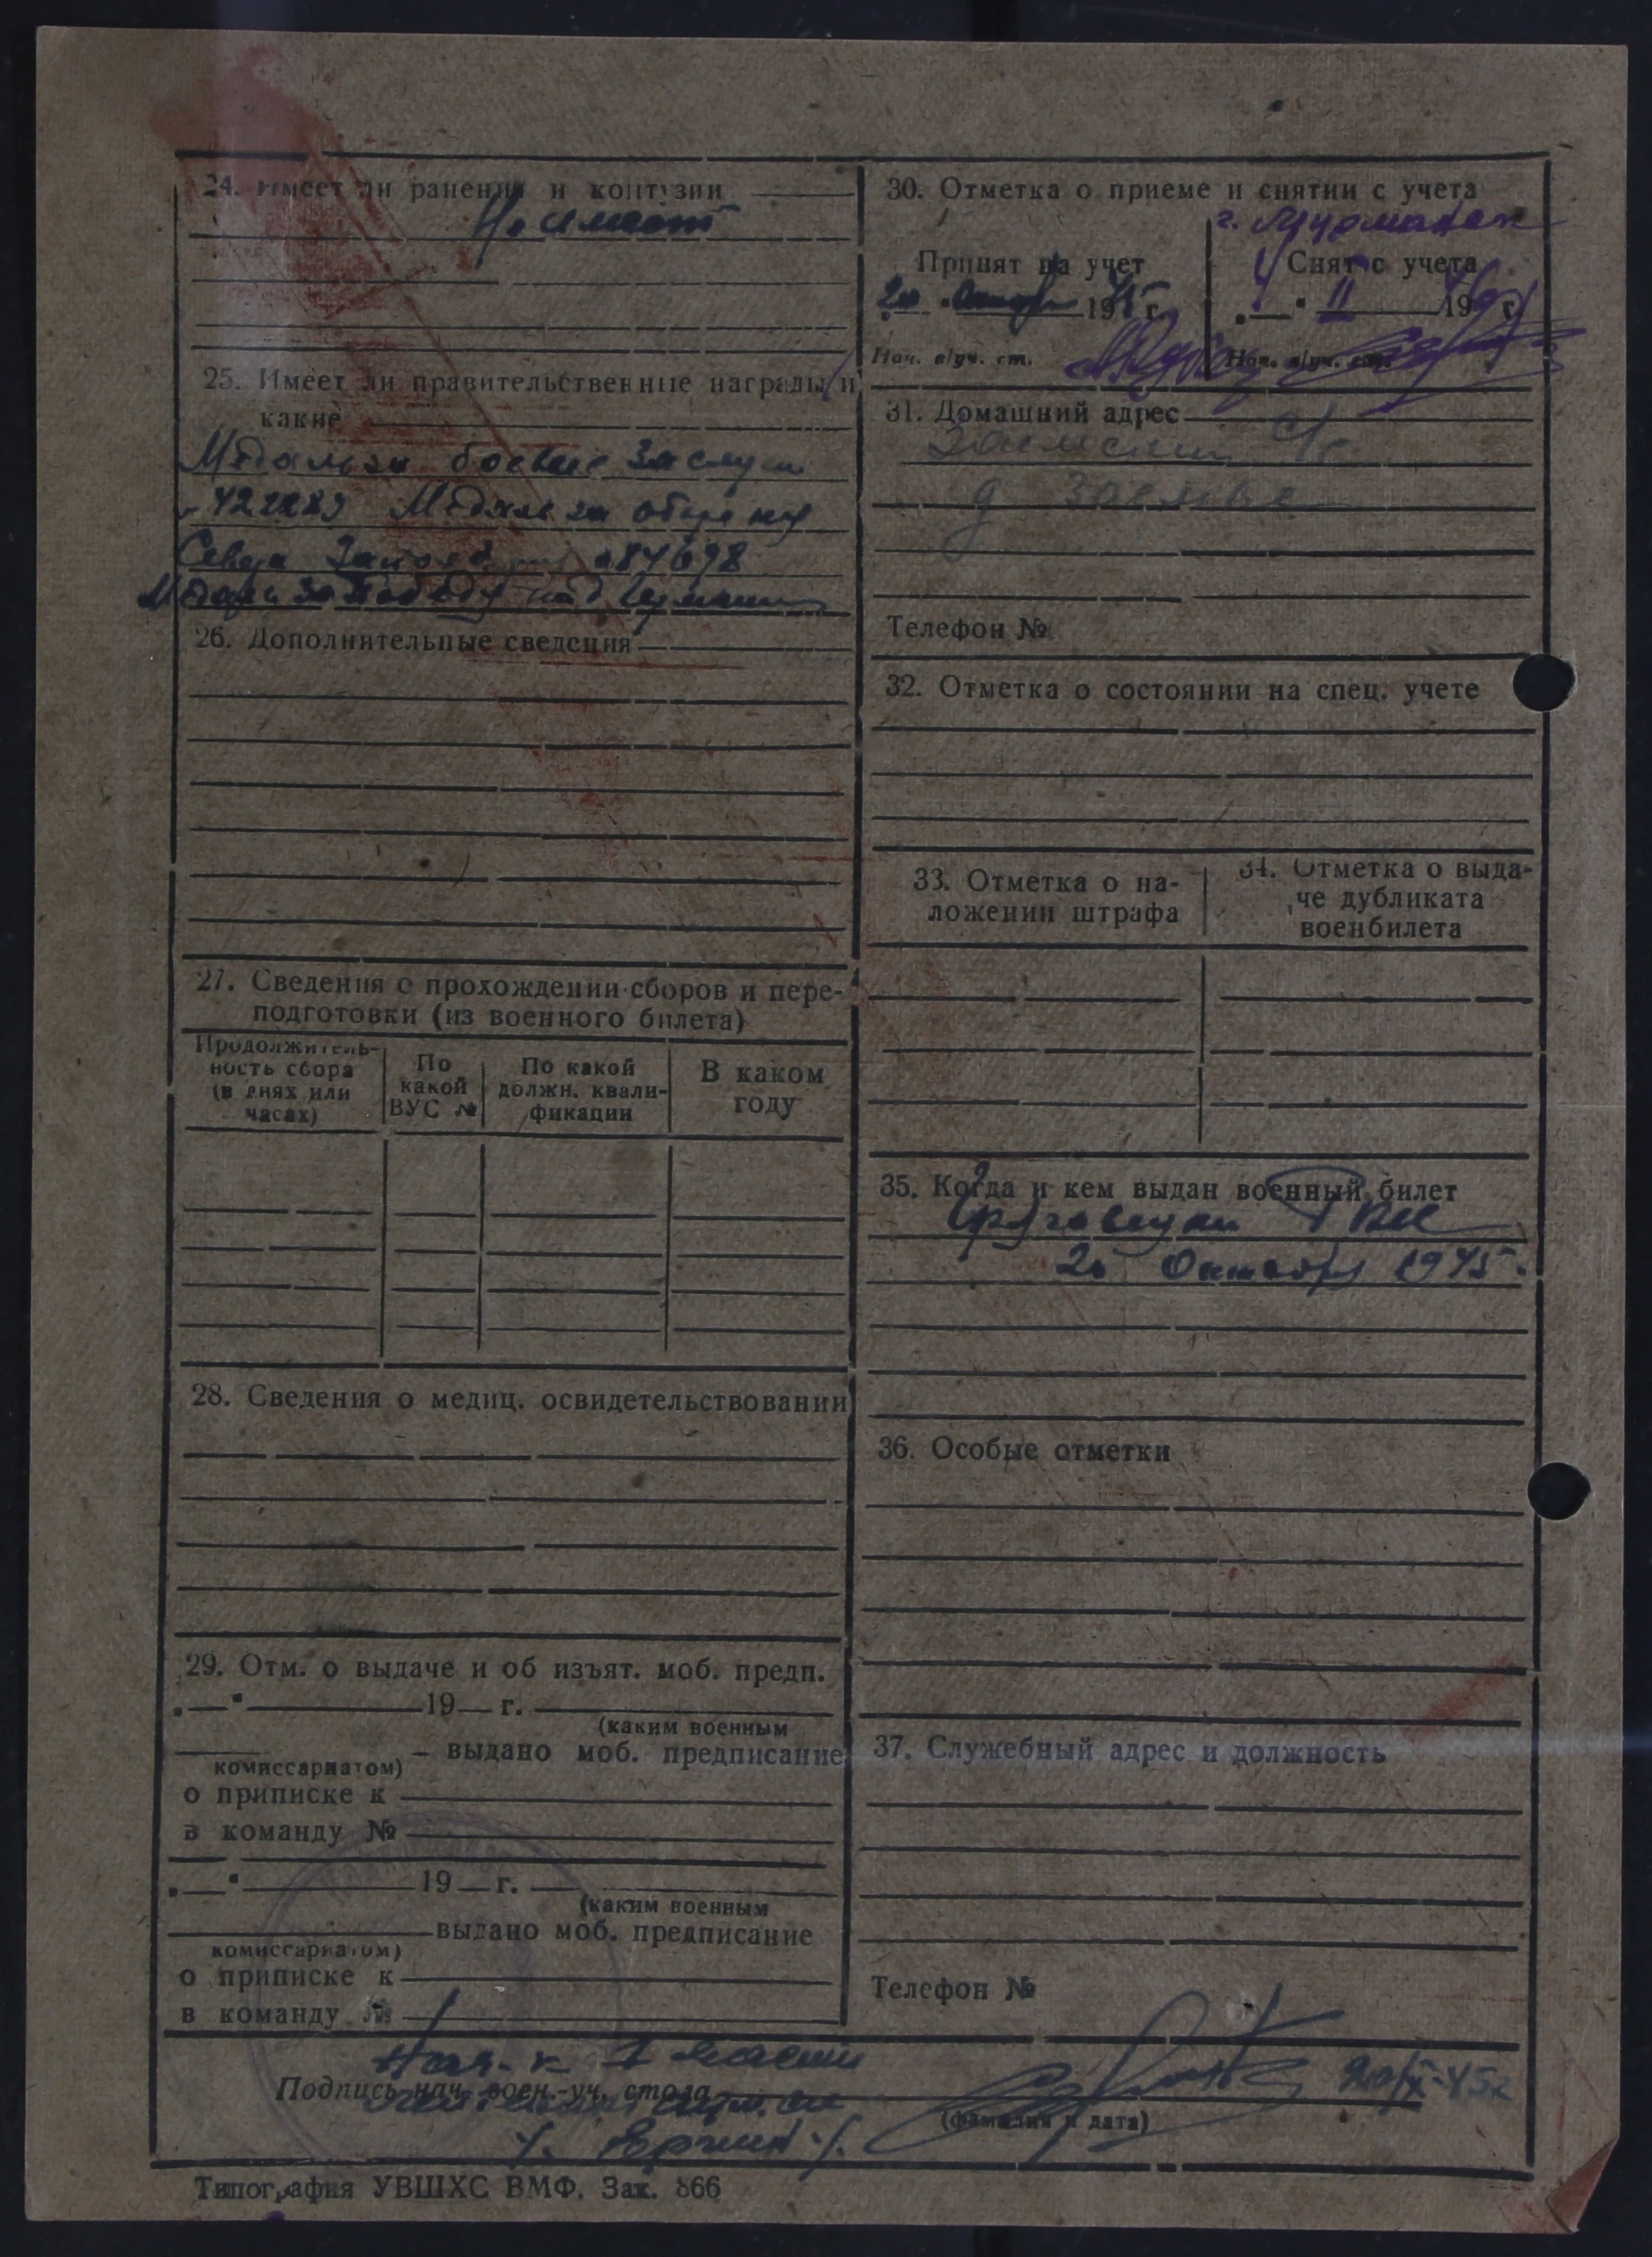 24. Имеет ли ранения и контузии
Не имеет
25. Имеет ли правительственные награды и
какие
Медаль за боевые заслуги
Медаль за оборону
Севера 084698
Медаль За Победу над Германией
26. Дополнительные сведения
27. Сведения о прохождении сборов и пере-
подготовки (из военного билета)
Продолжитель-
ность сбора
(в днях или
часах)
По
какой
ВУС №
По какой
должн. квали-
фикации
В каком
году
28. Сведения о медиц. освидетельствовании
29. Отм. о выдаче и об изъят. моб. предп.
„—“ 19— г.
(каким военным
комиссариатом) — выдано моб. предписание
о приписке к
в команду №
„—“ 19— г.
(каким военным
выдано моб. предписание
комиссариатом)
о приписке к
в команду №
30. Отметка о приеме и снятии с учета
г. Мурманск
Принят на учет
20 1945 г.
Нач. в/уч. ст.
Снят с учета
4 II 1946 г.
Нач. в/уч. ст.
31. Домашний адрес
с/с
д
Телефон №
32. Отметка о состоянии на спец. учете
33. Отметка о на-
ложении штрафа
34. Отметка о выда-
че дубликата
военбилета
35. Когда и кем выдан военный билет
РВК
20 Октября 1945.
36. Особые отметки
37. Служебный адрес и должность
Телефон №
Нач-к 1 части
Подпись нач. воен.-уч. стола
(фамилия и дата)
Типография УВШХС ВМФ. Зак. 866